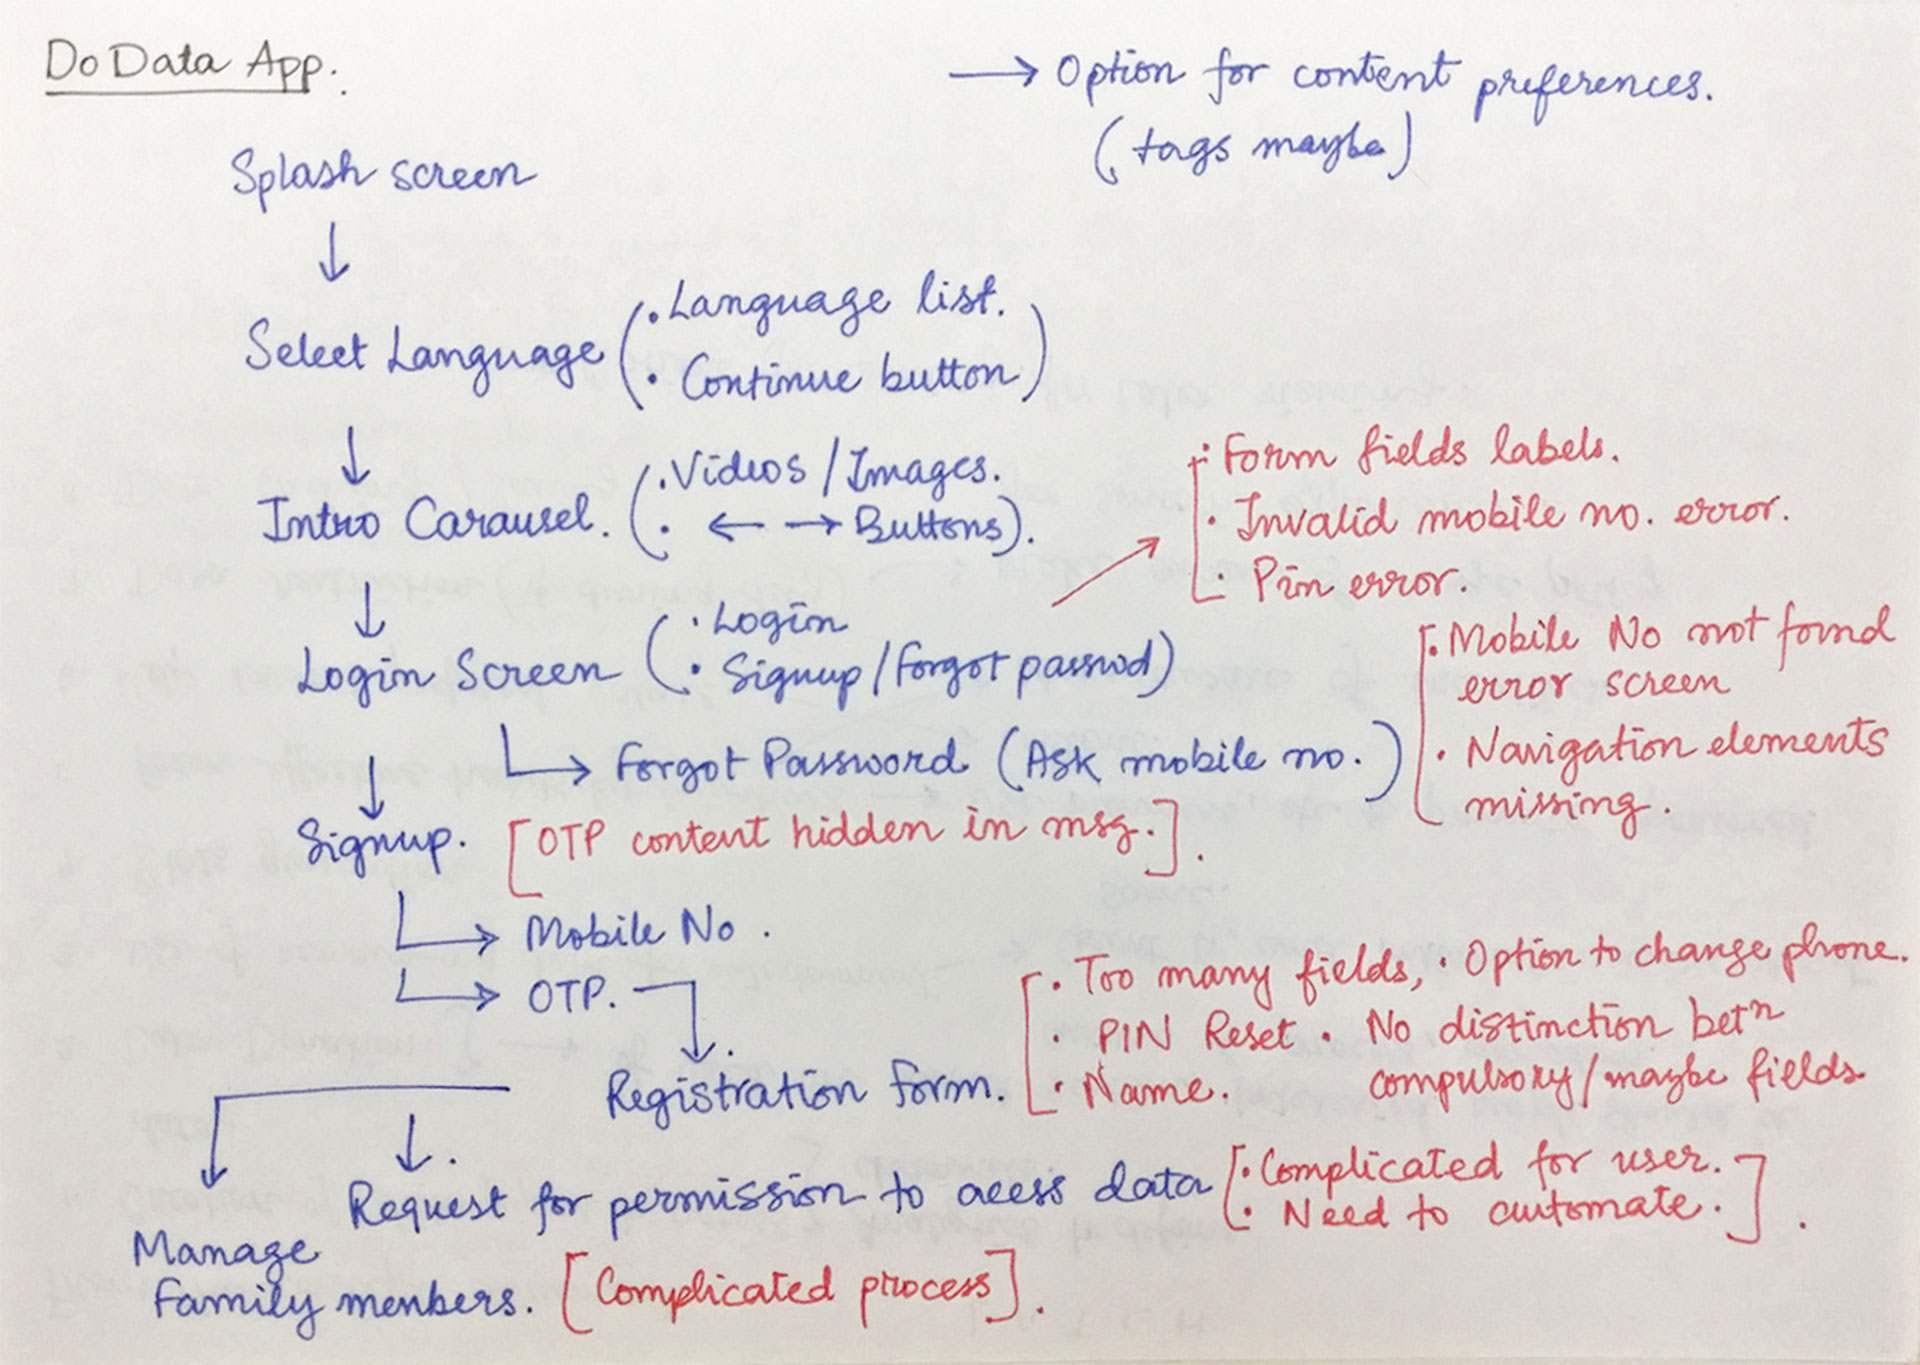 Do Data App.
→ Option for content preferences.
(tags maybe)
Splash screen
↓
Select Language
(. Language list.
. Continue button)
↓
Intro Carausel.
(. Videos / Images.
. ← → Buttons).
↓
Login Screen
(. Login
. Signup / Forgot passwd)
[. Form fields labels.
. Invalid mobile no. error.
. Pin error.
→ Forgot Password (Ask mobile no.)
[. Mobile No not found
error screen
. Navigation elements
missing.
↓
Signup. [OTP content hidden in msg.].
→ Mobile No.
→ OTP.
↓
Registration form.
[. Too many fields, . Option to change phone.
. PIN Reset . No distinction betn
. Name. compulsory/maybe fields
↓
Request for permission to acess data
[. Complicated for user.
. Need to automate.].
Manage
Family menbers. [Complicated process].